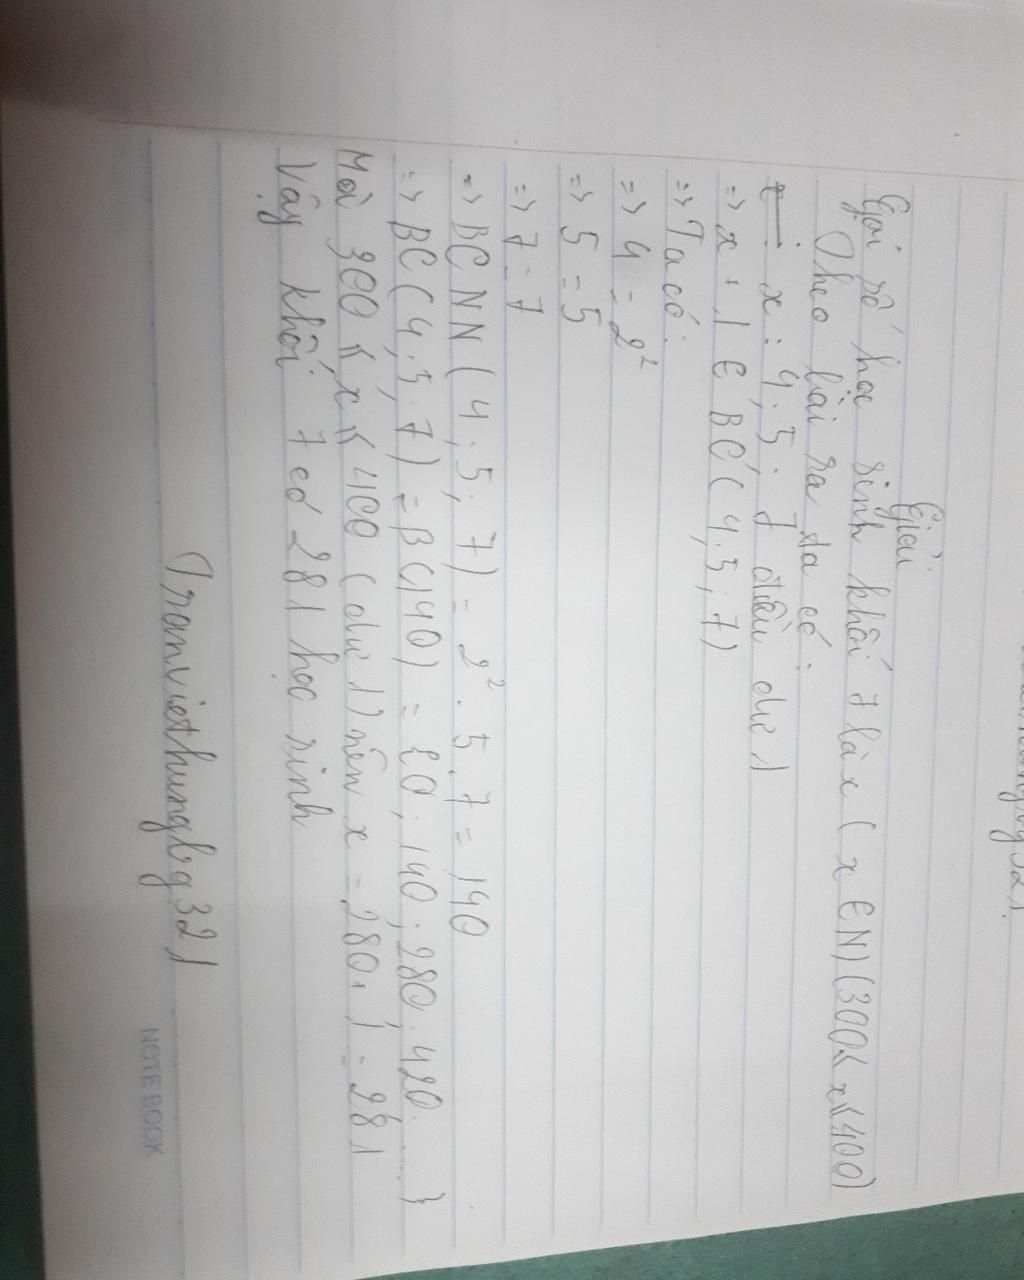 Giải
Gọi số học sinh khối 7 là x ( x ∈ N) (300 ≤ x ≤ 400)
Theo bài ra ta có:
x : 4, 5; 7 đều dư 1
=> x + 1 ∈ BC( 4, 5; 7)
=> Ta có:
=> 4 = 2²
=> 5 = 5
=> 7 = 7
=> BCNN ( 4, 5; 7) = 2² . 5 . 7 = 140
=> BC ( 4, 5, 7) = B(140) = {0; 140; 280; 420; ....}
Mà 300 ≤ x ≤ 400 (dư 1) nên x = 280 + 1 = 281
Vậy khối 7 có 281 học sinh
Tranviethungbg321
NOTEBOOK